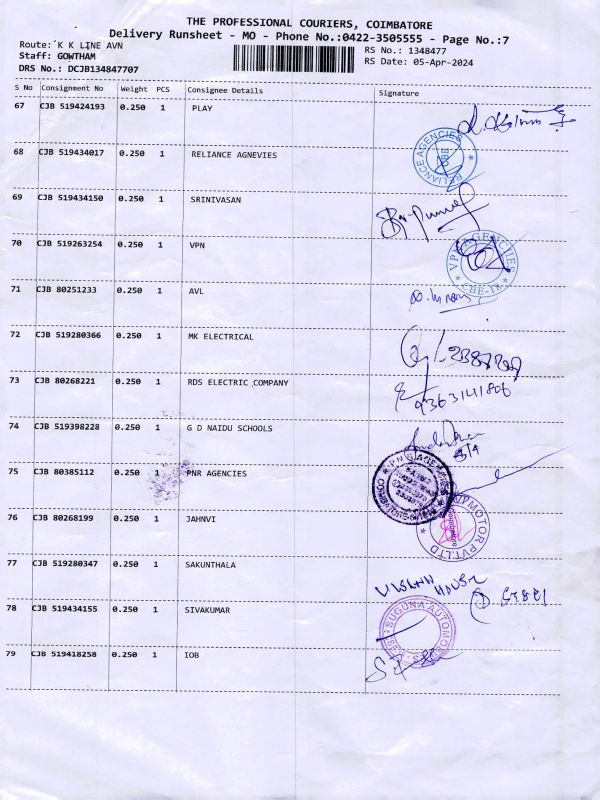 THE PROFESSIONAL COURIERS, COIMBATORE
Delivery Runsheet - MO - Phone No.:0422-3505555 - Page No.:7
Route: K K LINE AVN
RS No.: 1348477
Staff: GOWTHAM
RS Date: 05-Apr-2024
DRS No.: DCJB134847707
S No Consignment No Weight PCS Consignee Details Signature
67 CJB 519424193 0.250 1 PLAY
68 CJB 519434017 0.250 1 RELIANCE AGNEVIES
RELIANCE AGENCIES
69 CJB 519434150 0.250 1 SRINIVASAN
70 CJB 519263254 0.250 1 VPN
VPN AGENCIES
CBE-18
71 CJB 80251233 0.250 1 AVL
72 CJB 519280366 0.250 1 MK ELECTRICAL
73 CJB 80268221 0.250 1 RDS ELECTRIC COMPANY
9363141806
74 CJB 519398228 0.250 1 G D NAIDU SCHOOLS
75 CJB 80385112 0.250 1 PNR AGENCIES
PNR AGENCIES
76 CJB 80268199 0.250 1 JAHNVI
MOTOR PVT.LTD
77 CJB 519280347 0.250 1 SAKUNTHALA
HOUSE
78 CJB 519434155 0.250 1 SIVAKUMAR
SUGUNA
79 CJB 519418258 0.250 1 IOB